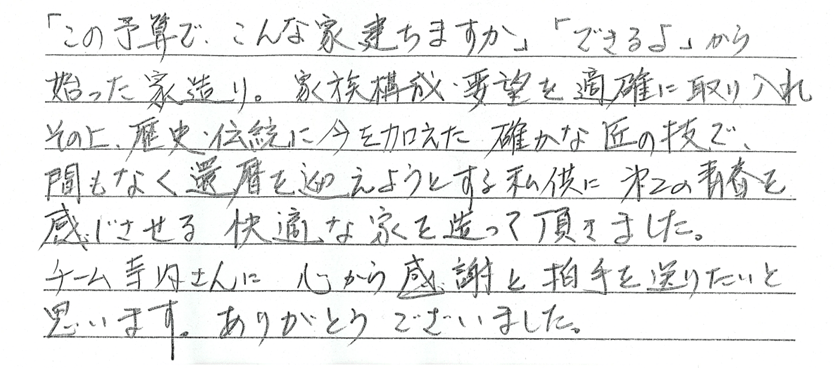 「この予算で、こんな家建ちますか」「できるよ」から
始った家造り。家族構成・要望を適確に取り入れ
その上、歴史・伝統に今を加えた 確かな匠の技で、
間もなく還暦を迎えようとする私供に 第二の青春を
感じさせる 快適な家を造って頂きました。
チーム寺内さんに 心から感謝と拍手を送りたいと
思います。ありがとうございました。